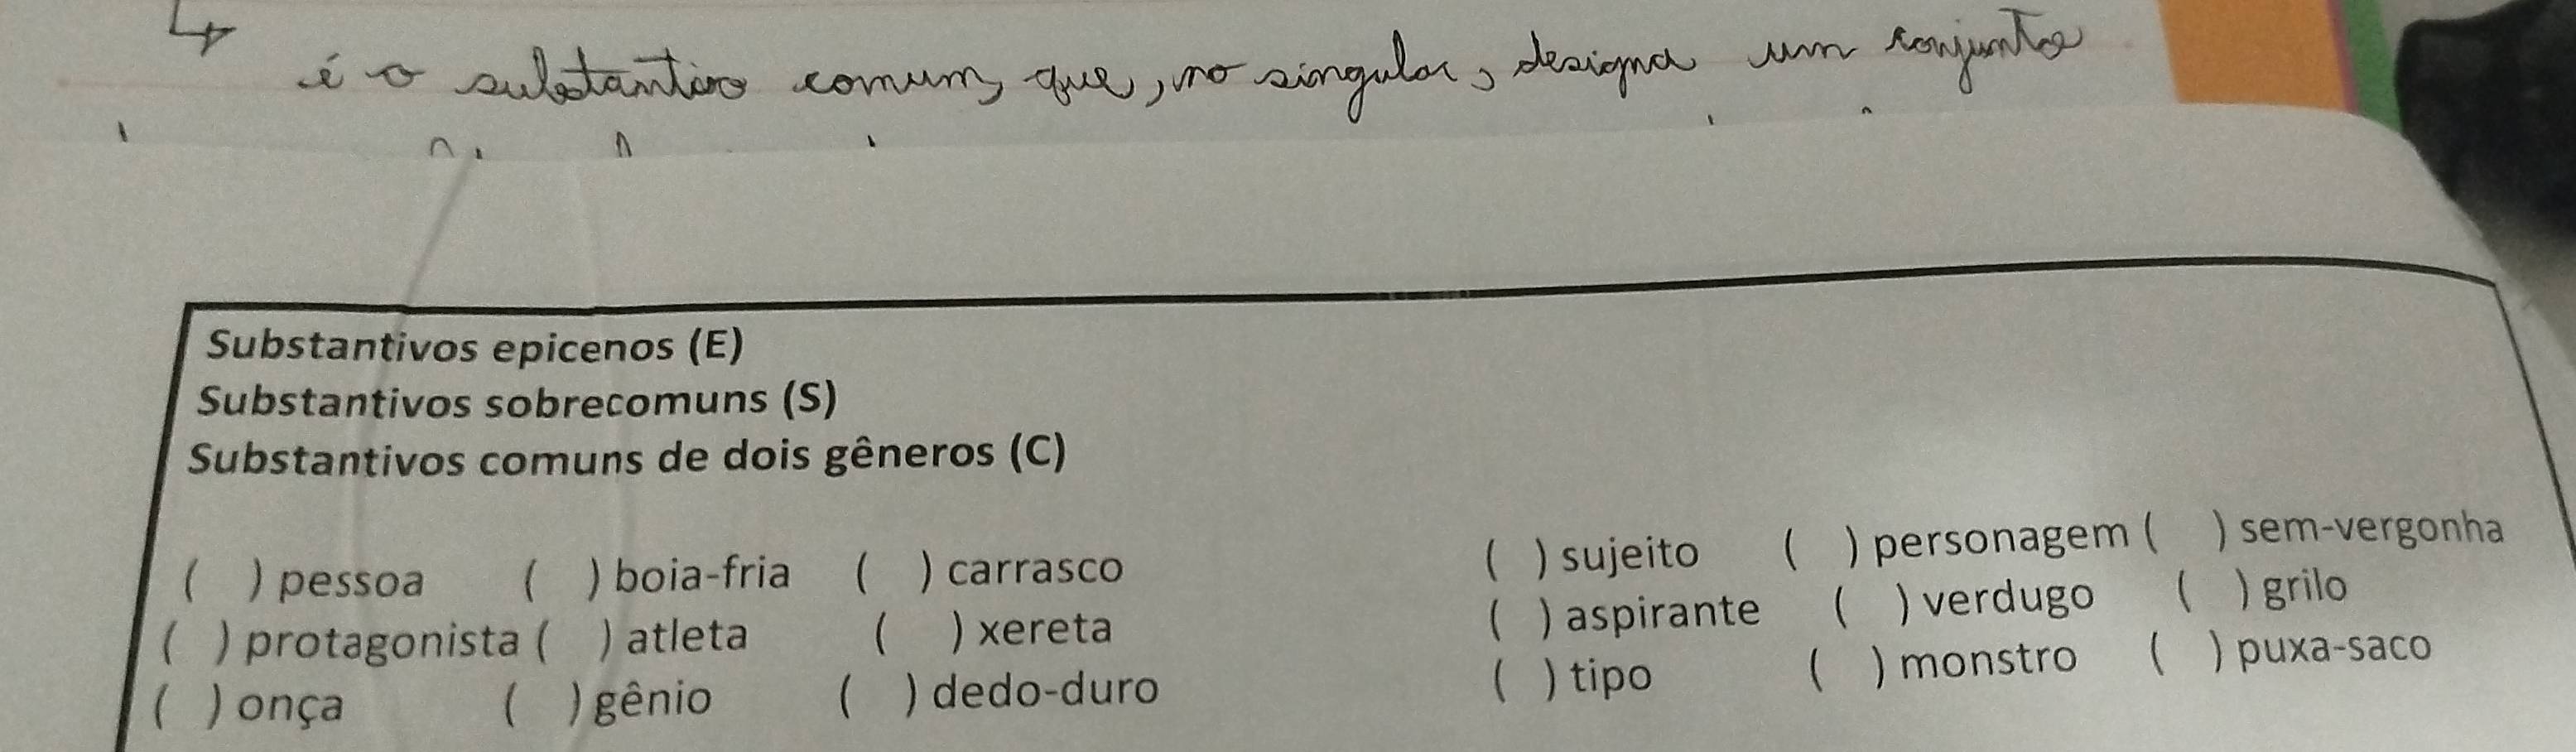 ↳ é o substantivo comum, que, no singular, designa um conjunto
Substantivos epicenos (E)
Substantivos sobrecomuns (S)
Substantivos comuns de dois gêneros (C)
( ) pessoa ( ) boia-fria ( ) carrasco ( ) sujeito ( ) personagem ( ) sem-vergonha
( ) protagonista ( ) atleta ( ) xereta ( ) aspirante ( ) verdugo ( ) grilo
( ) onça ( ) gênio ( ) dedo-duro ( ) tipo ( ) monstro ( ) puxa-saco